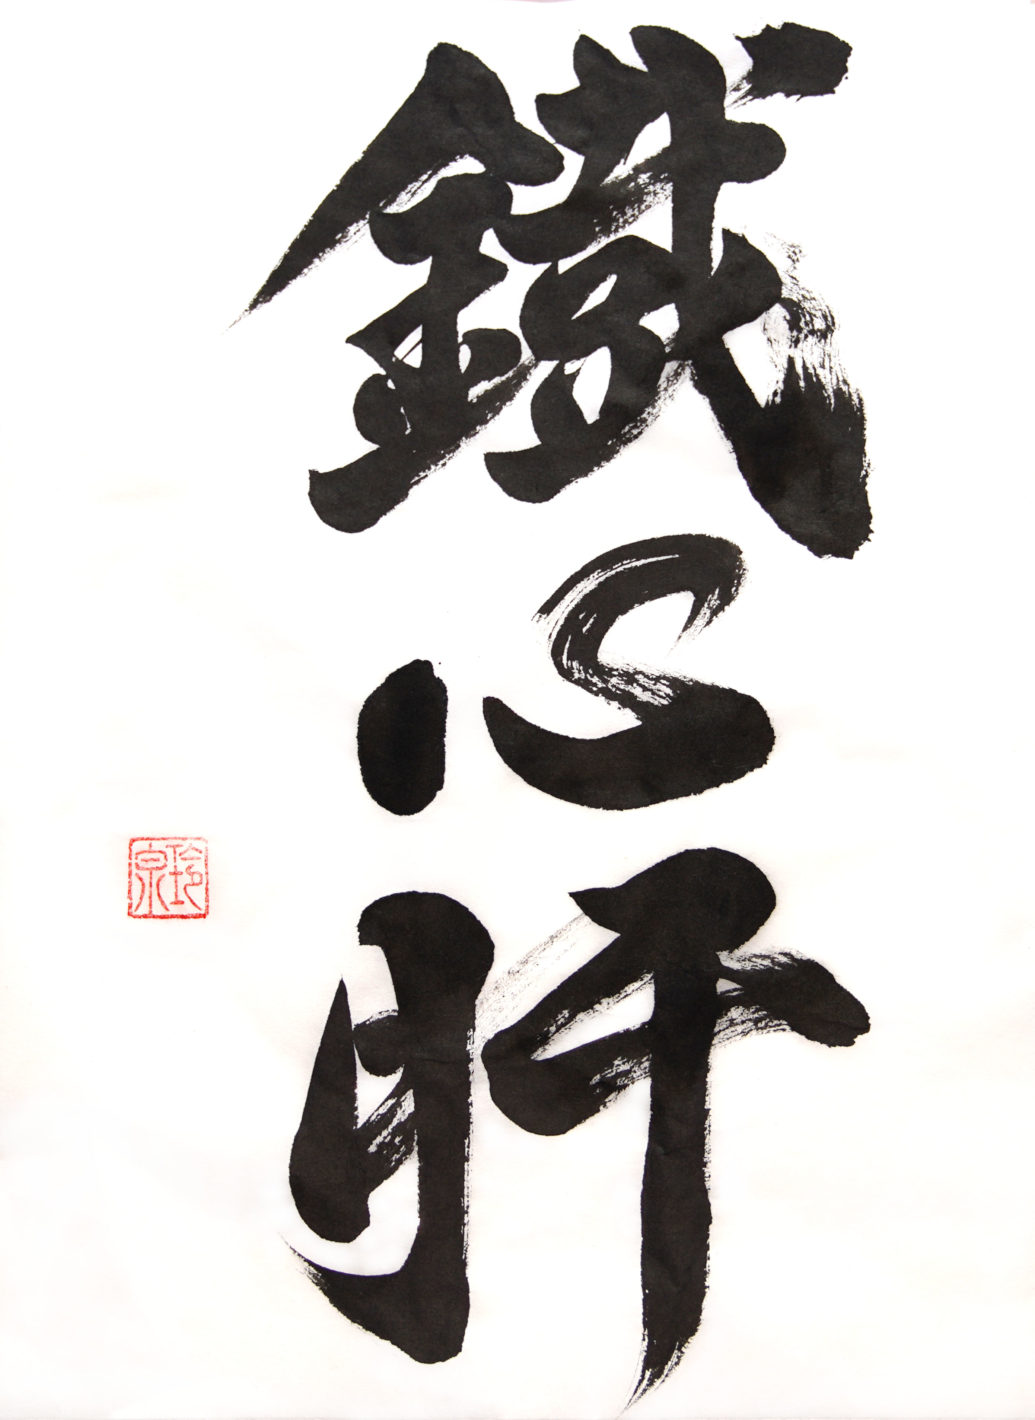 鐵心肝
玲泉